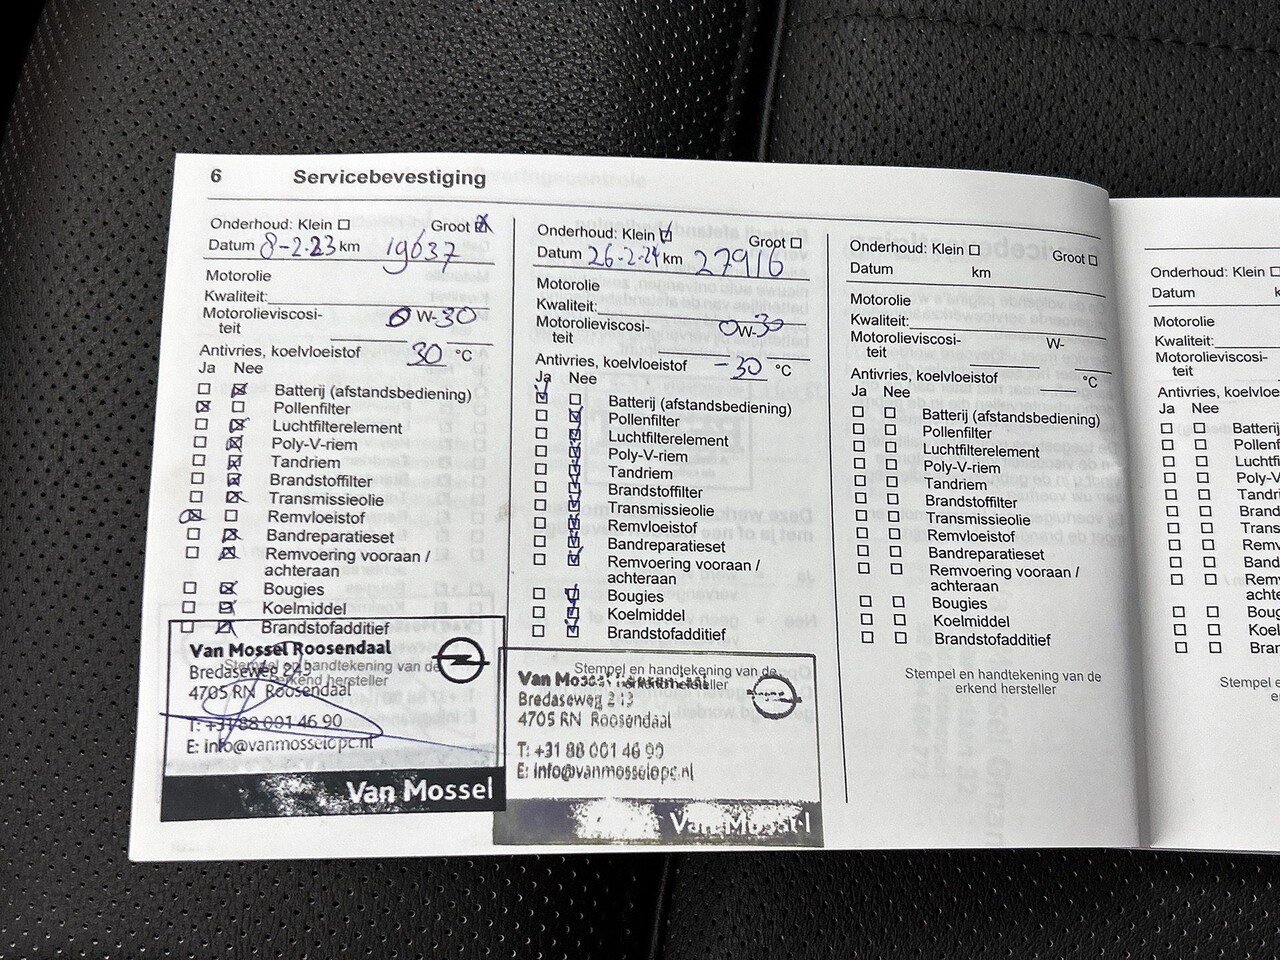 6 Servicebevestiging
Onderhoud: Klein ☐ Groot ☒
Datum 8-2-23 km 19637
Motorolie
Kwaliteit:
Motorolieviscosi-
teit 0 W-30
Antivries, koelvloeistof 30 °C
Ja Nee
☐ ☒ Batterij (afstandsbediening)
☒ ☐ Pollenfilter
☐ ☒ Luchtfilterelement
☐ ☒ Poly-V-riem
☐ ☒ Tandriem
☐ ☒ Brandstoffilter
☐ ☒ Transmissieolie
☒ ☐ Remvloeistof
☐ ☒ Bandreparatieset
☐ ☒ Remvoering vooraan /
achteraan
☐ ☒ Bougies
☐ ☒ Koelmiddel
☐ ☒ Brandstofadditief
Stempel en handtekening van de
erkend hersteller
Van Mossel Roosendaal
Bredaseweg
4705 RN Roosendaal
T: +31 88 001 46 90
E: info@vanmosselopc.nl
Van Mossel
Onderhoud: Klein ☑ Groot ☐
Datum 26-2-24 km 27916
Motorolie
Kwaliteit:
Motorolieviscosi-
teit 0W-30
Antivries, koelvloeistof -30 °C
Ja Nee
☑ ☐ Batterij (afstandsbediening)
☐ ☑ Pollenfilter
☐ ☑ Luchtfilterelement
☐ ☑ Poly-V-riem
☐ ☑ Tandriem
☐ ☑ Brandstoffilter
☐ ☑ Transmissieolie
☐ ☑ Remvloeistof
☐ ☑ Bandreparatieset
☐ ☑ Remvoering vooraan /
achteraan
☐ ☑ Bougies
☐ ☑ Koelmiddel
☐ ☑ Brandstofadditief
Stempel en handtekening van de
erkend hersteller
Van Mossel
Bredaseweg 213
4705 RN Roosendaal
T: +31 88 001 46 90
E: info@vanmosselopc.nl
Van Mossel
Onderhoud: Klein ☐ Groot ☐
Datum km
Motorolie
Kwaliteit:
Motorolieviscosi-
teit W-
Antivries, koelvloeistof °C
Ja Nee
☐ ☐ Batterij (afstandsbediening)
☐ ☐ Pollenfilter
☐ ☐ Luchtfilterelement
☐ ☐ Poly-V-riem
☐ ☐ Tandriem
☐ ☐ Brandstoffilter
☐ ☐ Transmissieolie
☐ ☐ Remvloeistof
☐ ☐ Bandreparatieset
☐ ☐ Remvoering vooraan /
achteraan
☐ ☐ Bougies
☐ ☐ Koelmiddel
☐ ☐ Brandstofadditief
Stempel en handtekening van de
erkend hersteller
Onderhoud: Klein ☐
Datum k
Motorolie
Kwaliteit:
Motorolieviscosi-
teit
Antivries, koelvloe
Ja Nee
☐ ☐ Batterij
☐ ☐ Pollenf
☐ ☐ Luchtfi
☐ ☐ Poly-V
☐ ☐ Tandri
☐ ☐ Brand
☐ ☐ Trans
☐ ☐ Remv
☐ ☐ Band
☐ ☐ Rem
achte
☐ ☐ Boug
☐ ☐ Koel
☐ ☐ Bran
Stempel e
e